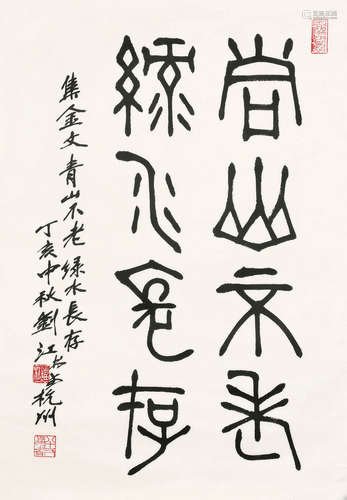 青山不老
绿水長存
集金文青山不老绿水長存
丁亥中秋劉江於杭州